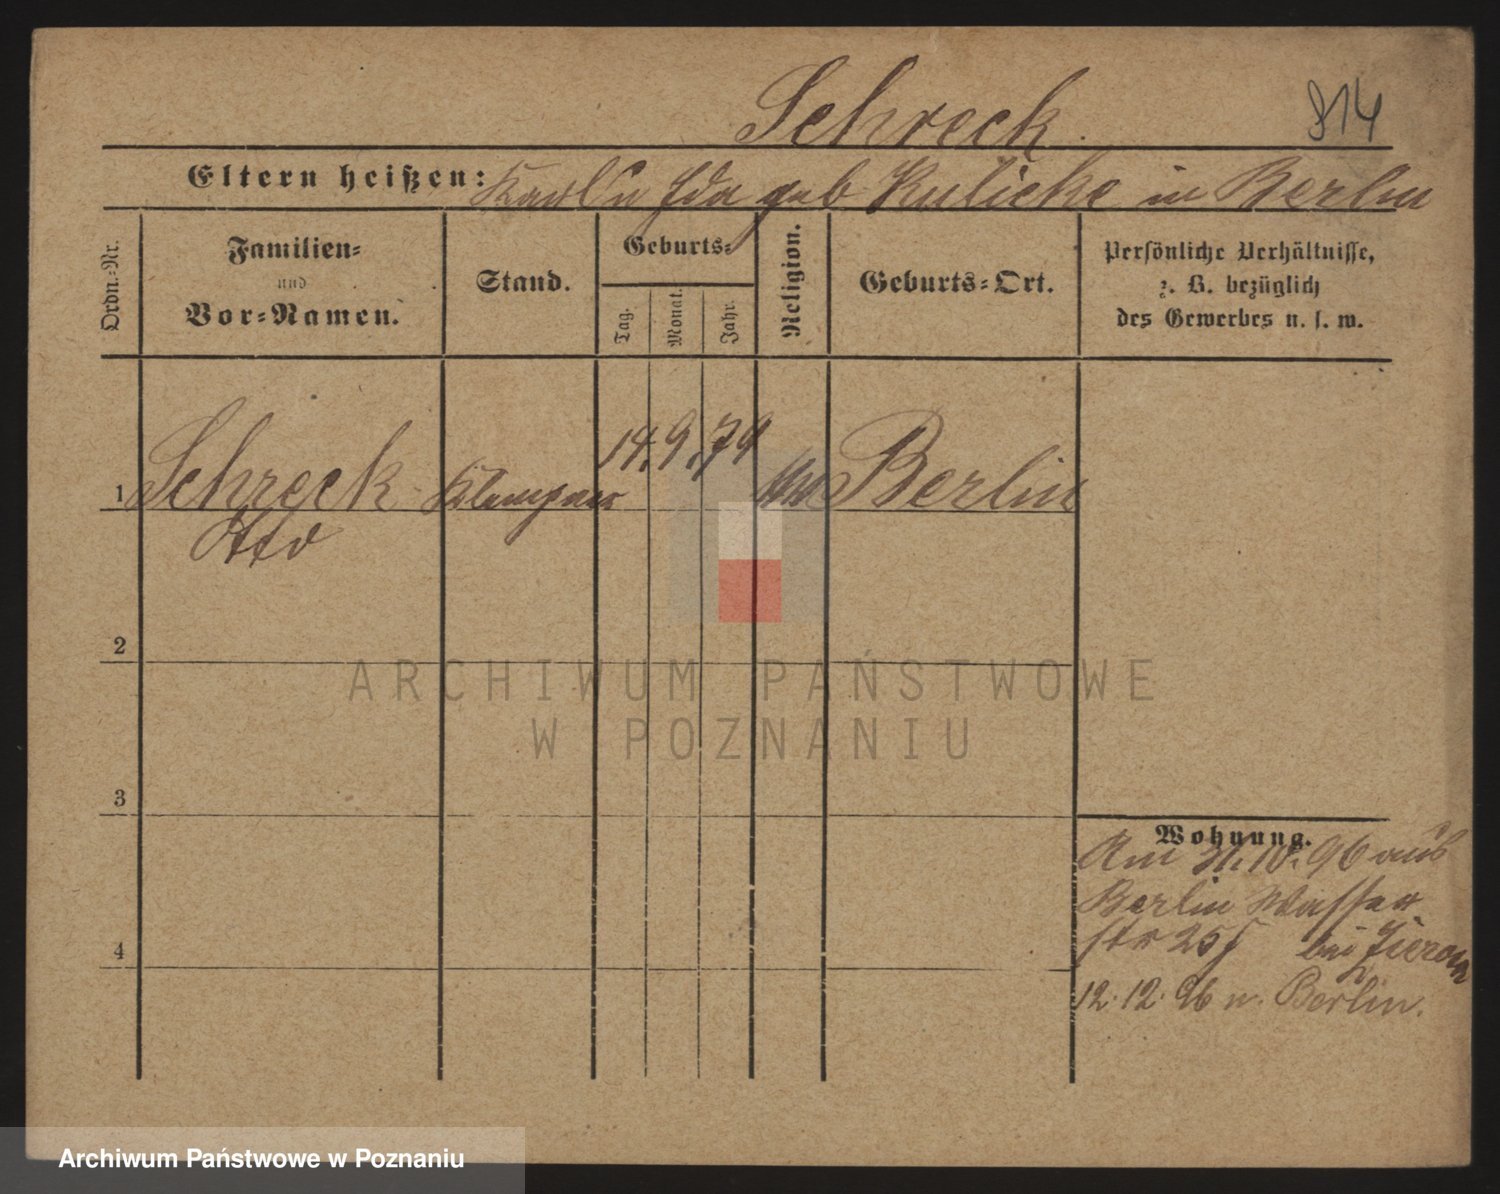 Schreck.
814
Eltern heißen: Karl u Ida geb Kulicke in Berlin
Ordn.-Nr.
Familien-
und
Vor-Namen.
Stand.
Geburts-
Tag.
Monat.
Jahr.
Religion.
Geburts-Ort.
Persönliche Verhältnisse,
z. B. bezüglich
des Gewerbes u. s. w.
1 Schreck Klempner 14. 9. 79 Berlin
Otto
2
ARCHIWUM PAŃSTWOWE
W POZNANIU
3
Wohnung.
Am 31.10.96 aus
Berlin Wasser
str 25 bei
4
12.12.96 n. Berlin.
Archiwum Państwowe w Poznaniu